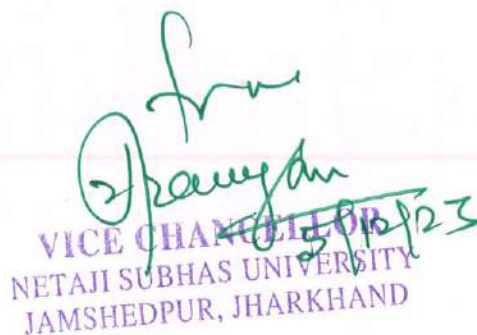 5/12/23
VICE CHANCELLOR
NETAJI SUBHAS UNIVERSITY
JAMSHEDPUR, JHARKHAND